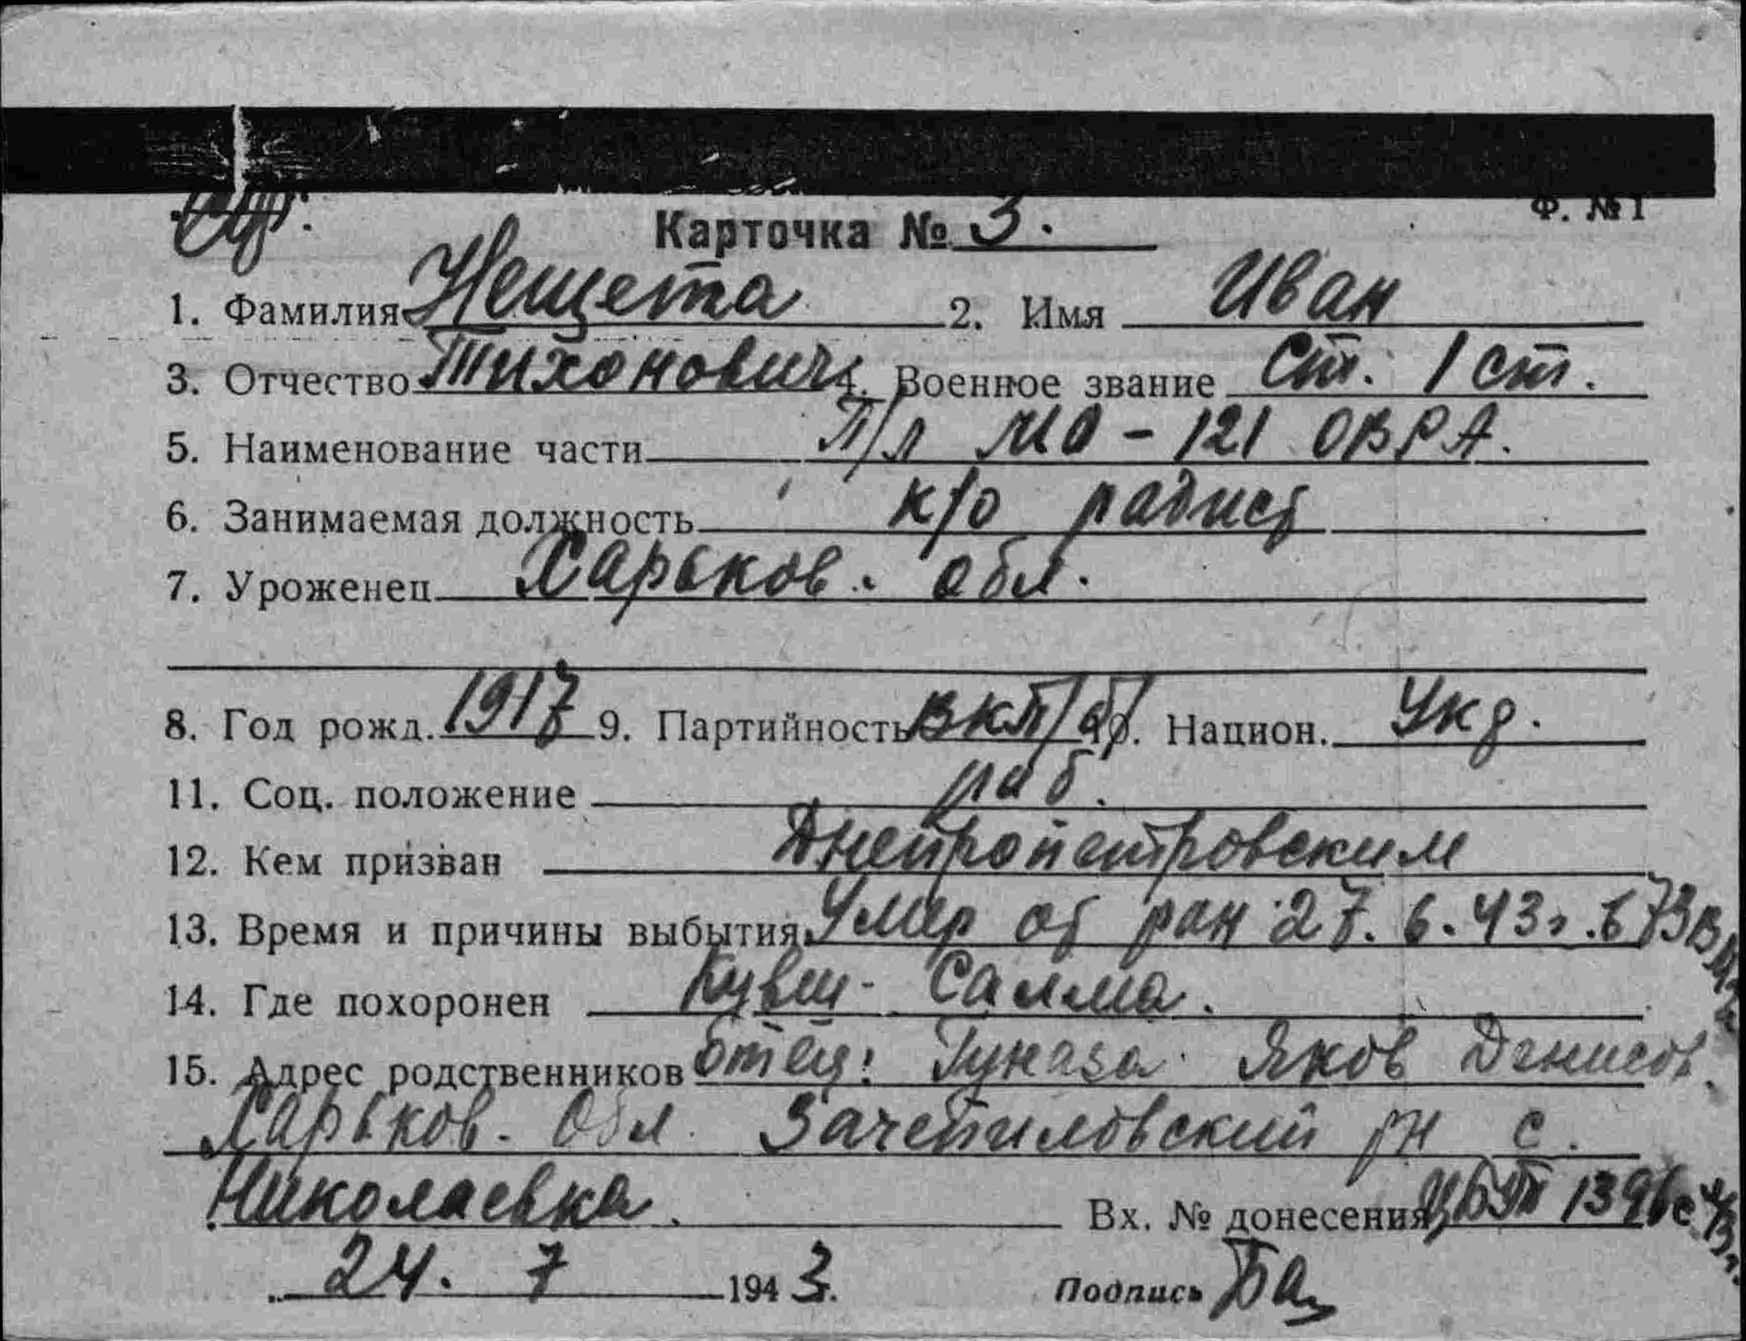 Ф. № 1
Карточка № 3.
1. Фамилия Нещета 2. Имя Иван
3. Отчество Тихонович 4. Военное звание Ст. 1 ст.
5. Наименование части П/л МО - 121 ОВРА.
6. Занимаемая должность к/о радист
7. Уроженец Харьков. обл.
8. Год рожд. 1917 9. Партийность ВКП/б/ 10. Национ. Укр.
11. Соц. положение раб.
12. Кем призван Днепропетровским
13. Время и причины выбытия Умер от ран 27. 6. 43г. в 73 ВМГ
14. Где похоронен Кувш. Салма.
15. Адрес родственников отец: Яков Денисов.
Харьков. Обл. Зачепиловский рн с.
Николаевка. Вх. № донесения 1396с
24. 7 1943.
Подпись